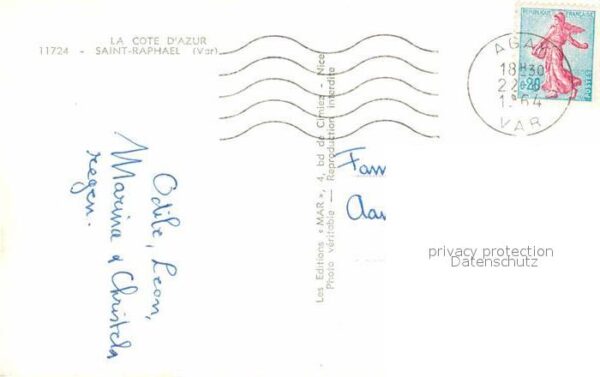 LA COTE D'AZUR
11724 - SAINT-RAPHAEL (Var)
Odile, Leon,
Marina & Christela
Les Editions « MAR », 4, bd de Cimiez - Nice
Photo véritable — Reproduction interdite
REPUBLIQUE FRANÇAISE
0,20
POSTES
AGAY
18H30
1964
VAR
Fam
Aa
privacy protection
Datenschutz